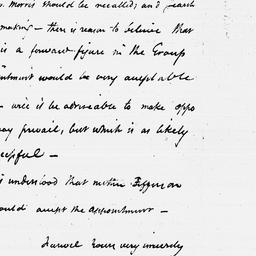 . Morris should be recalled; and search
making — there is reason to believe that
is a forward figure in the Group
intment would be very acceptable
— would it be adviseable to make oppo
ay prevail, but which is as likely
cessful —
is understood that neither Jefferson
ould accept the appointment —
Farewel Yours very sincerely